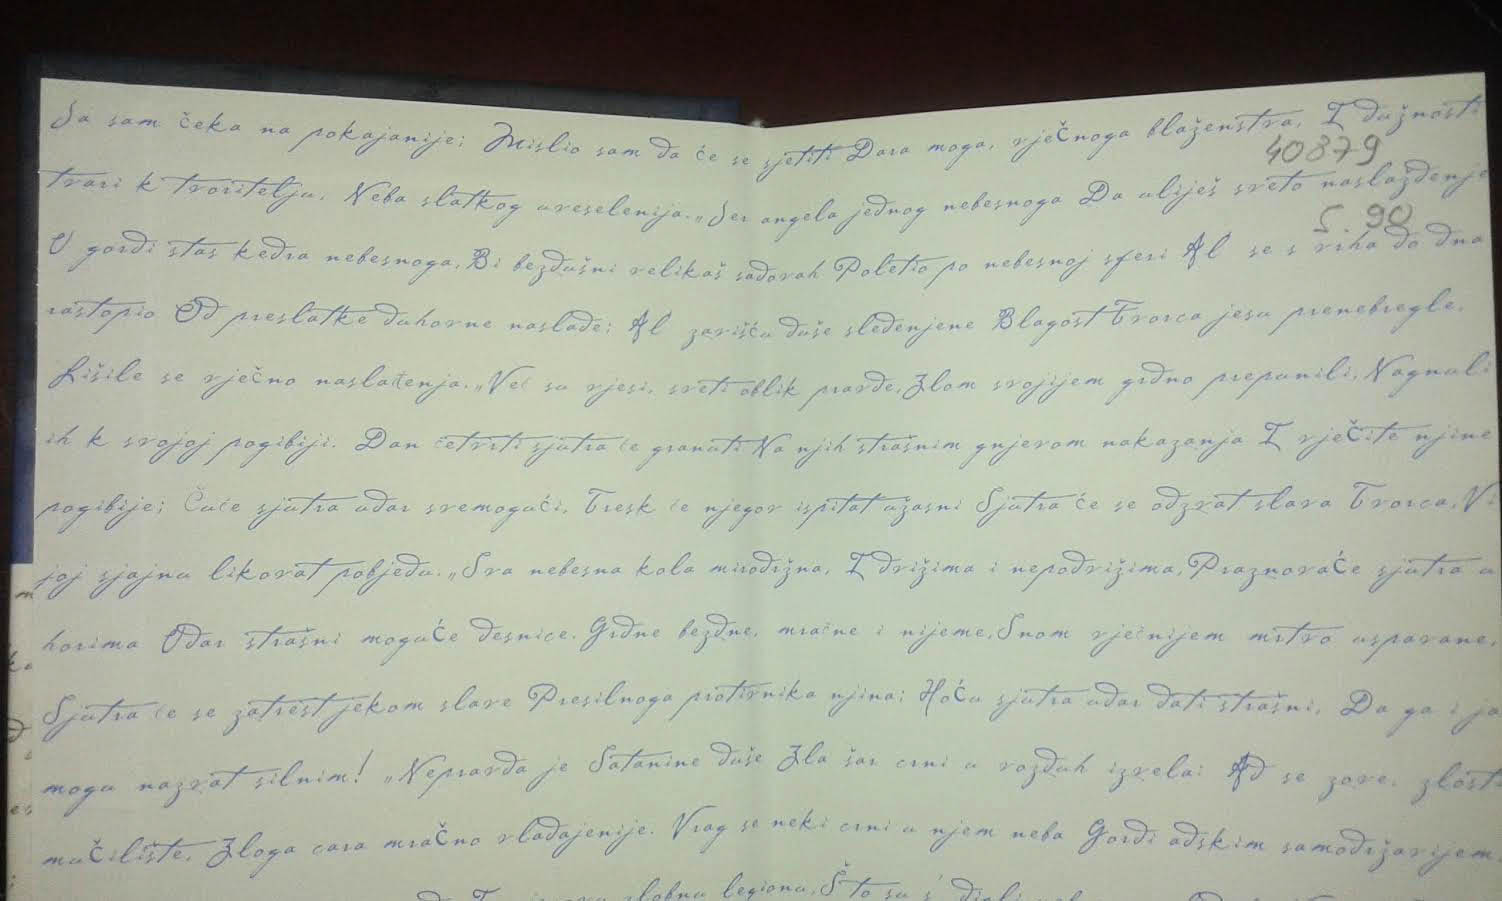 Ja sam čeka na pokajanije; Mislio sam da će se sjetiti Dara moga, vječnoga blaženstva, I dužnosti
40879
tvari k tvoritelju, Neba slatkog uveselenija. „Jer angela jednog nebesnoga Da uliješ sveto naslaždenje
5. 90
U gordi stas kedra nebesnoga, Bi bezdušni velikaš sadovah Poletio po nebesnoj sferi Al se s vrha do dna
rastopio Od preslatke duhovne naslade; Al zavišću duše sleđenjene Blagost Tvorca jesu prenebregle,
Lišile se vječno naslađenja. „Već su vjesi, sveti oblik pravde, Zlom svojijem grdno prepunili, Nagnuli
ih k svojoj pogibiji. Dan četvrti sjutra će granuti Na njih strašnim gnjevom nakazanja I vječite njine
pogibije; Čuće sjutra udar svemogući, Tresk će njegov ispitat užasni Sjutra će se odzvat slava Tvorca, Vi
joj sjajnu likovat pobjedu. „Sva nebesna kola mirodržna, I dvižima i nepodvižima, Praznovaće sjutra u
horima Udar strašni moguće desnice. Grdne bezdne, mračne i nijeme, Snom vječnijem mrtvo uspavane,
Sjutra će se zatrest jekom slave Presilnoga protivnika njina; Hoću sjutra udar dati strašni, Da ga i ja
mogu nazvat silnim! „Nepravda je Satanine duše Zla šar crni u vozduh izvela: Ad se zove, zlosti
mučilište, Zloga cara mračno vladajenije. Vrag se neki crni u njem neba Gordi adskim samodržavijem,
zlobnu legionu, Što su s'